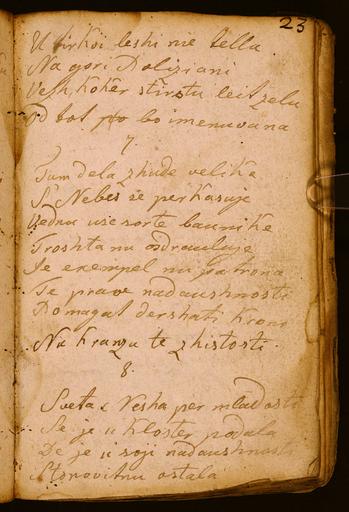 23
U tirkvi leshi nie tella
Na gori Roliziani
Vezh, kokèr stirstu leit zelu
Od tot bo imenuvana
7.
Tum dela zhude velike
S' Nebes se perkasuje
Vednu use sorte baunike
Troshta nu osdrauluje
Je exempel nu patrona
Te prave nadaushnosti
Pomagat dershati krono
Nu kranzu te zhistosti.
8.
Sveta Nesha per mladosti
Se je u kloster podala
De je u soji nadaushnosti
Stonovitnu ostala